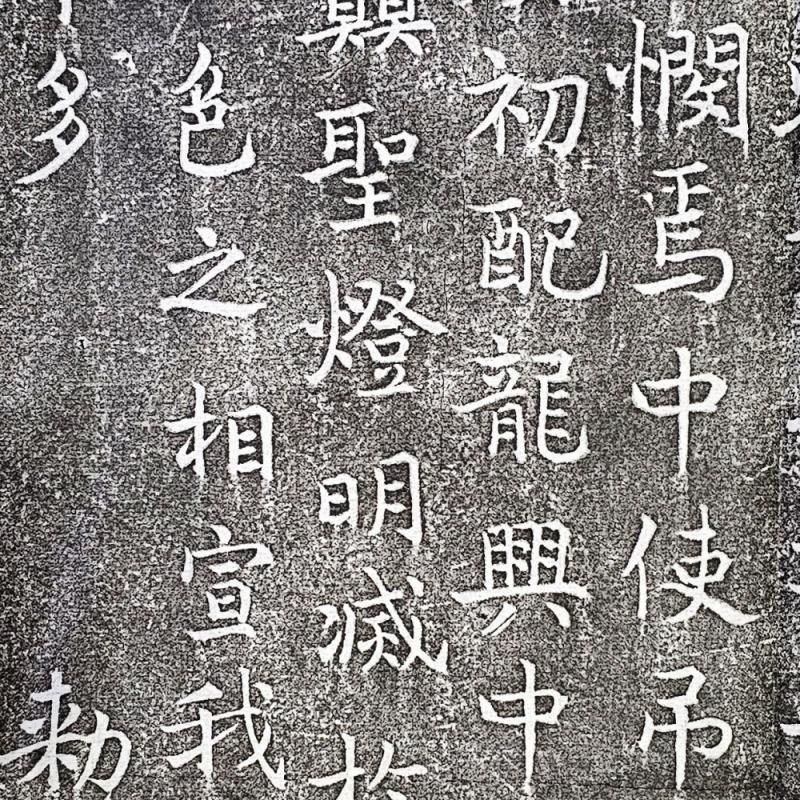 憫焉中使吊
初配龍興中
顛聖燈明滅於
色之相宣我
多 勅